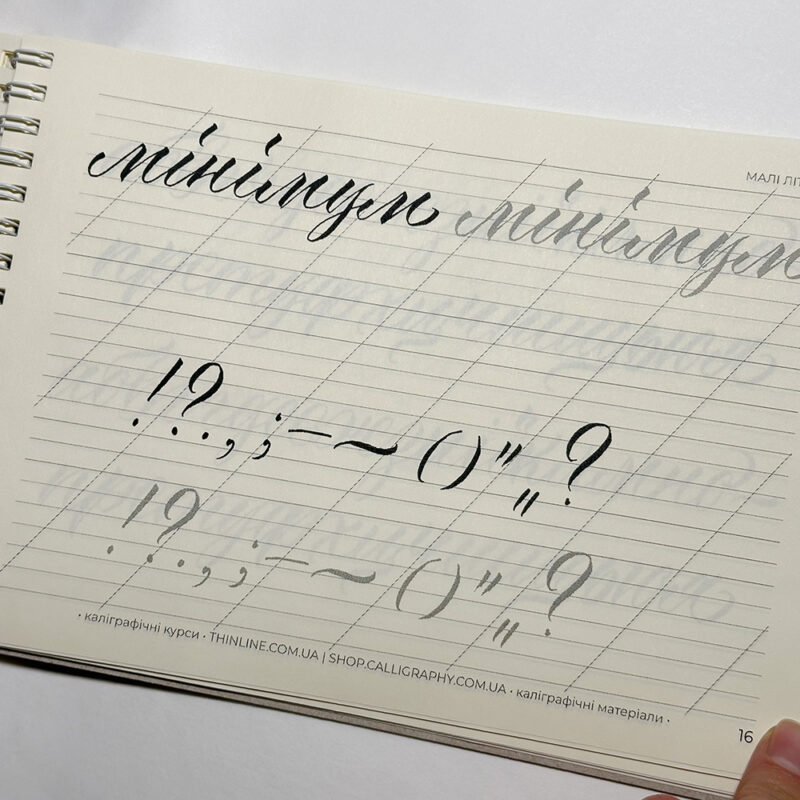 МАЛІ ЛІТ
мінімум мінімум
!?.,;—~()"„?
!?.,;—~()"„?
· каліграфічні курси · THINLINE.COM.UA | SHOP.CALLIGRAPHY.COM.UA · каліграфічні матеріали ·
16